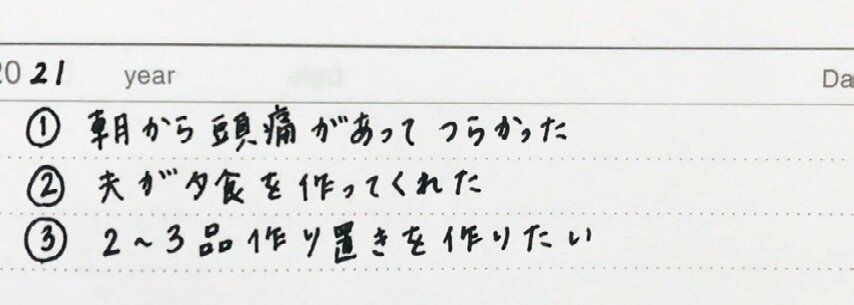 2021 year Da
① 朝から頭痛があってつらかった
② 夫が夕食を作ってくれた
③ 2～3品作り置きを作りたい